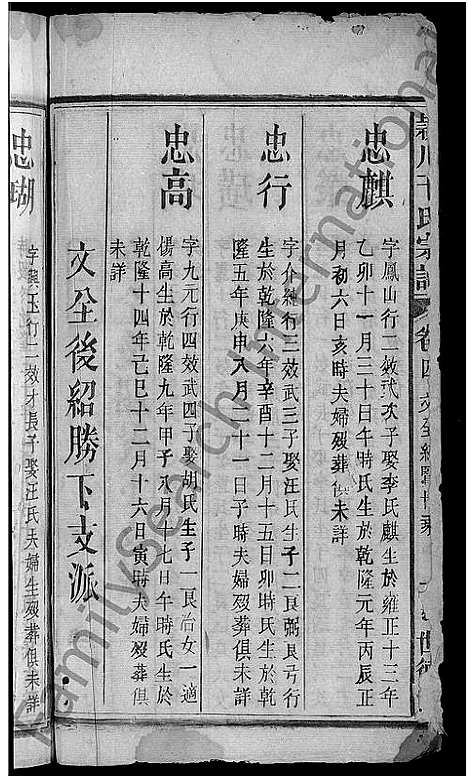 川干氏宗譜 卷四 文全紹賢世系
忠麒
字鳳山行二效武次子娶李氏麒生於雍正十三年
乙卯十一月三十日午時氏生於乾隆元年丙辰正
月初六日亥時夫婦歿葬俱未詳
忠行
字介維行三效武三子娶汪氏生子二良弼良弓行
生於乾隆六年辛酉十二月十五日卯時氏生於乾
隆五年庚申八月二十一日子時夫婦歿葬俱未詳
忠高
字九元行四效武四子娶胡氏生子一良治女一適
楊高生於乾隆九年甲子八月初七日午時氏生於
乾隆十四年己巳十二月十六日寅時夫婦歿葬俱
未詳
文全後紹勝下支派
忠瑚
字興玉行二效才長子娶汪氏夫婦生歿葬俱未詳
FamilySearch International